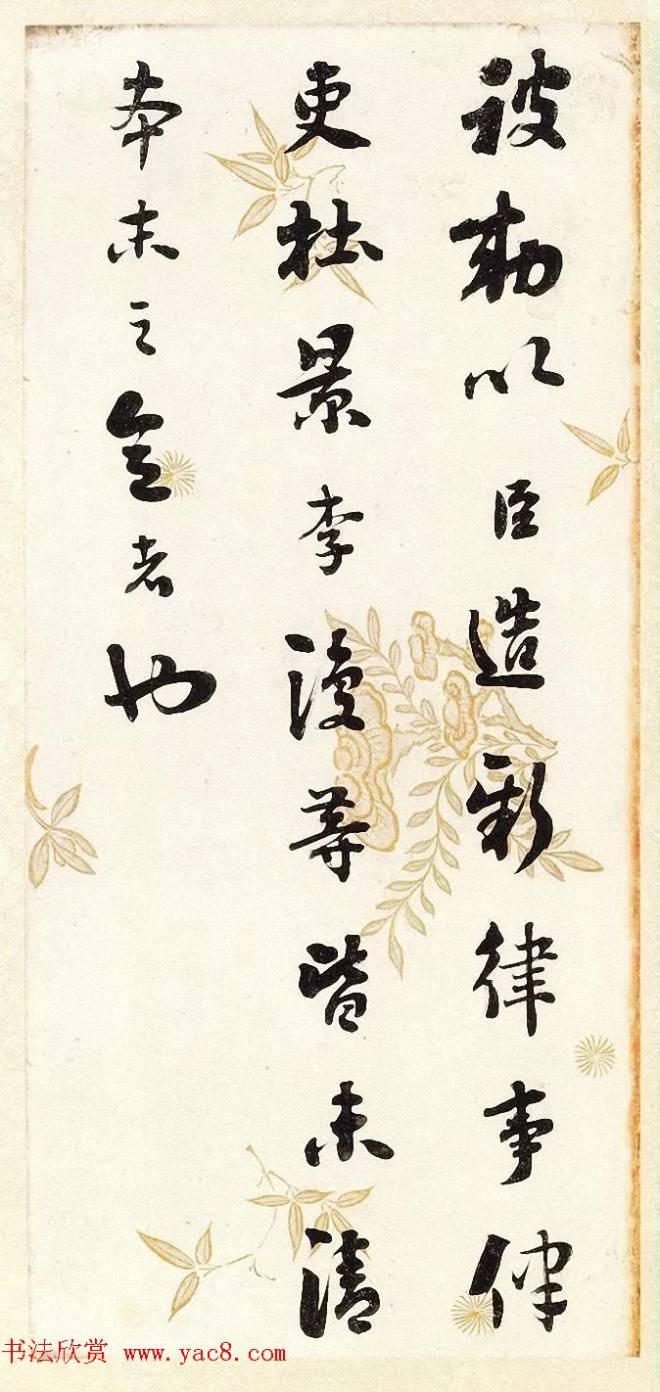 被勅以臣造新律事律
吏杜景李復等皆未清
本末之意者也
书法欣赏 www.yac8.com